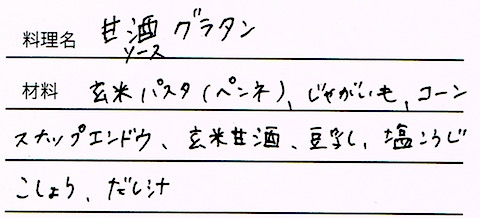 料理名 甘酒グラタン
ソース
材料 玄米パスタ(ペンネ)、じゃがいも、コーン
スナップエンドウ、玄米甘酒、豆乳、塩こうじ
こしょう、だし汁